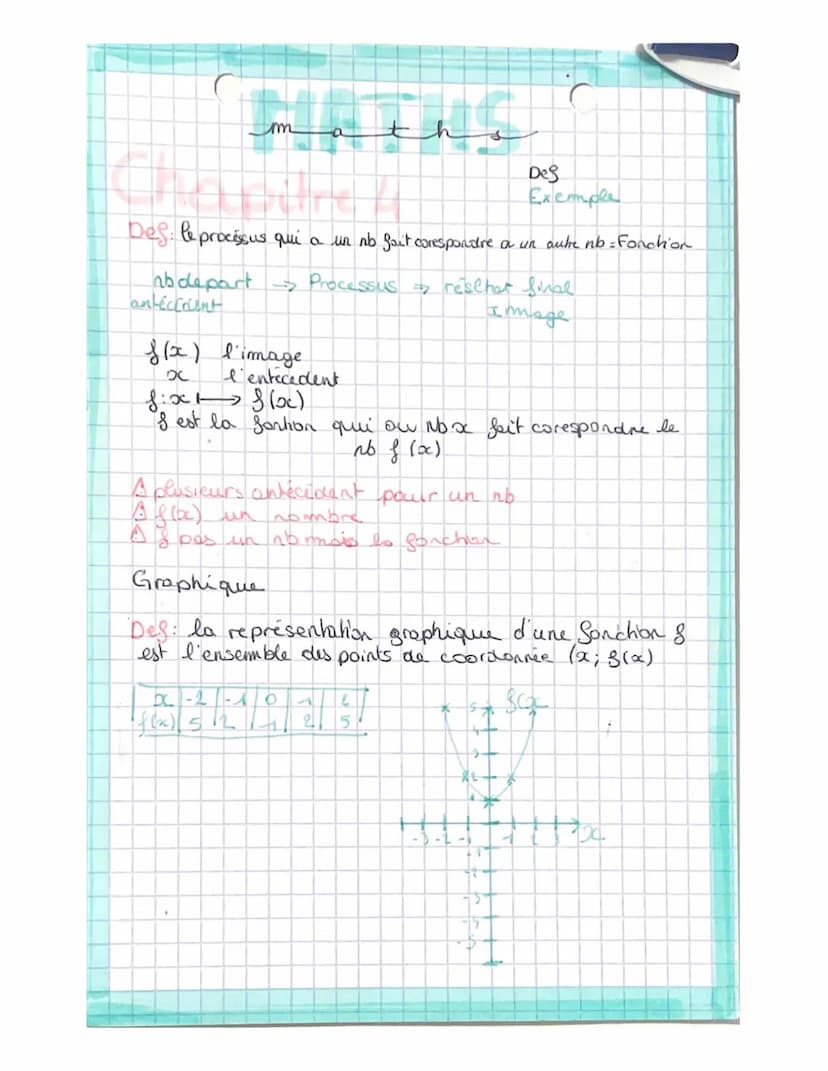 MATHS
maths
Def
Exemple
Chapitre 4
Def: le processus qui a un nb fait corespondre a un autre nb = Fonction
nb depart → Processus → final
Image
f(x) l'image
x l'entecedent
f: x ⟼ f(x)
f est la fontion qui au Nb x fait corespondre le
nb f (x)
⚠ plusieurs antécédant pour un nb
⚠ f(x) un nombre
⚠ f pas un nb mais la fonction
Graphique
Def: la représentation graphique d'une fonction f
est l'ensemble des points de coordonnée (x; f(x)
x | -2 | -1 | 0 | 1 | 2
f(x) | 5 | 2 | 1 | 2 | 5
f(x
5
4
3
2
1
-3 -2 -1 1 2 3 x
-1
-2
-3
-4
-5